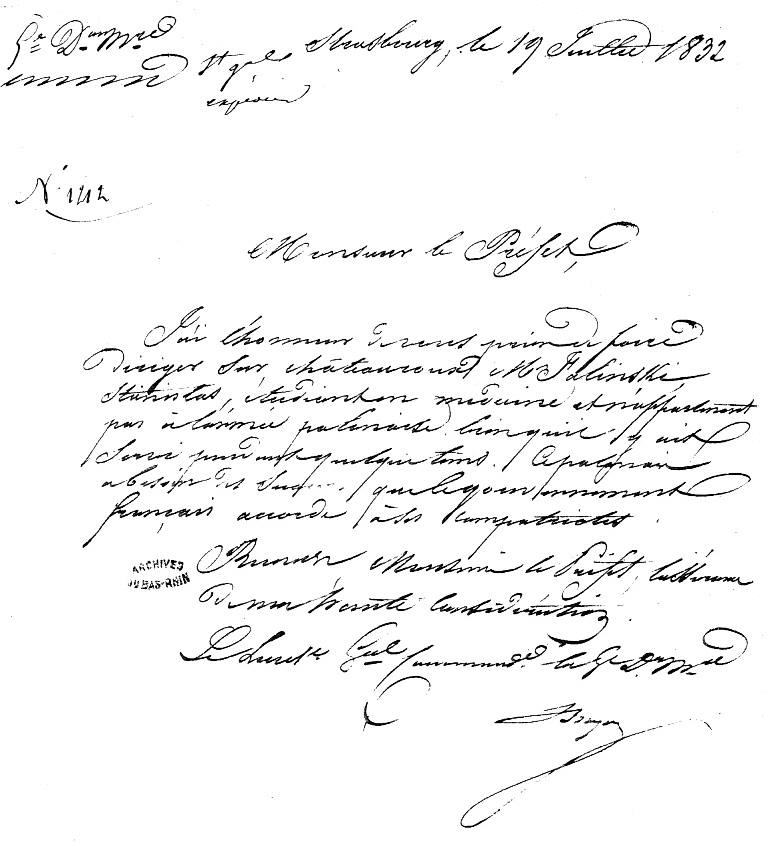 5e Don Mre
Strasbourg, le 19 Juillet 1832
N° 1212
Monsieur le Préfet,
J'ai l'honneur de vous prier de faire
diriger sur châteauroux Mr Falinski
Stanislas, étudiant en médecine et n'appartenant
pas à l'armée polonaise bien qu'il y ait
servi pendant quelque tems. Ce polonais
a besoin des secours que le gouvernement
français accorde à ses compatriotes.
Recevez Monsieur le Préfet, l'assurance
de ma haute considération
Le Lieut. Gal Commandt la 5e Don Mre
ARCHIVES
DU BAS-RHIN